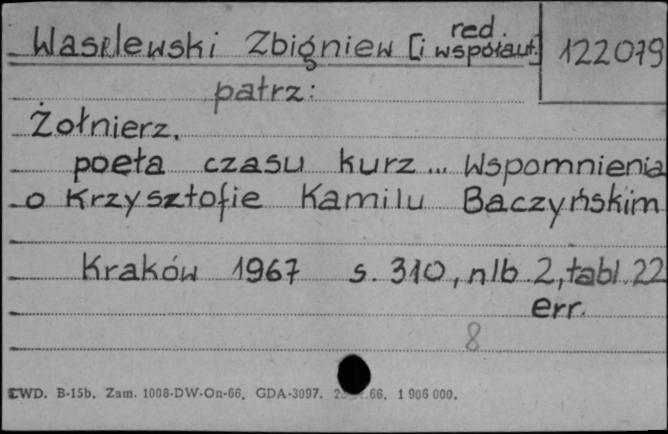 red.
Wasilewski Zbigniew [i współaut.] 122079
patrz:
Żołnierz,
poeta czasu kurz... Wspomnienia
o Krzysztofie Kamilu Baczyńskim
Kraków 1967 s. 310, nlb. 2, tabl. 22
err.
8
CWD. B-15b. Zam. 1008-DW-On-66. GDA-3097. 66. 1 906 000.